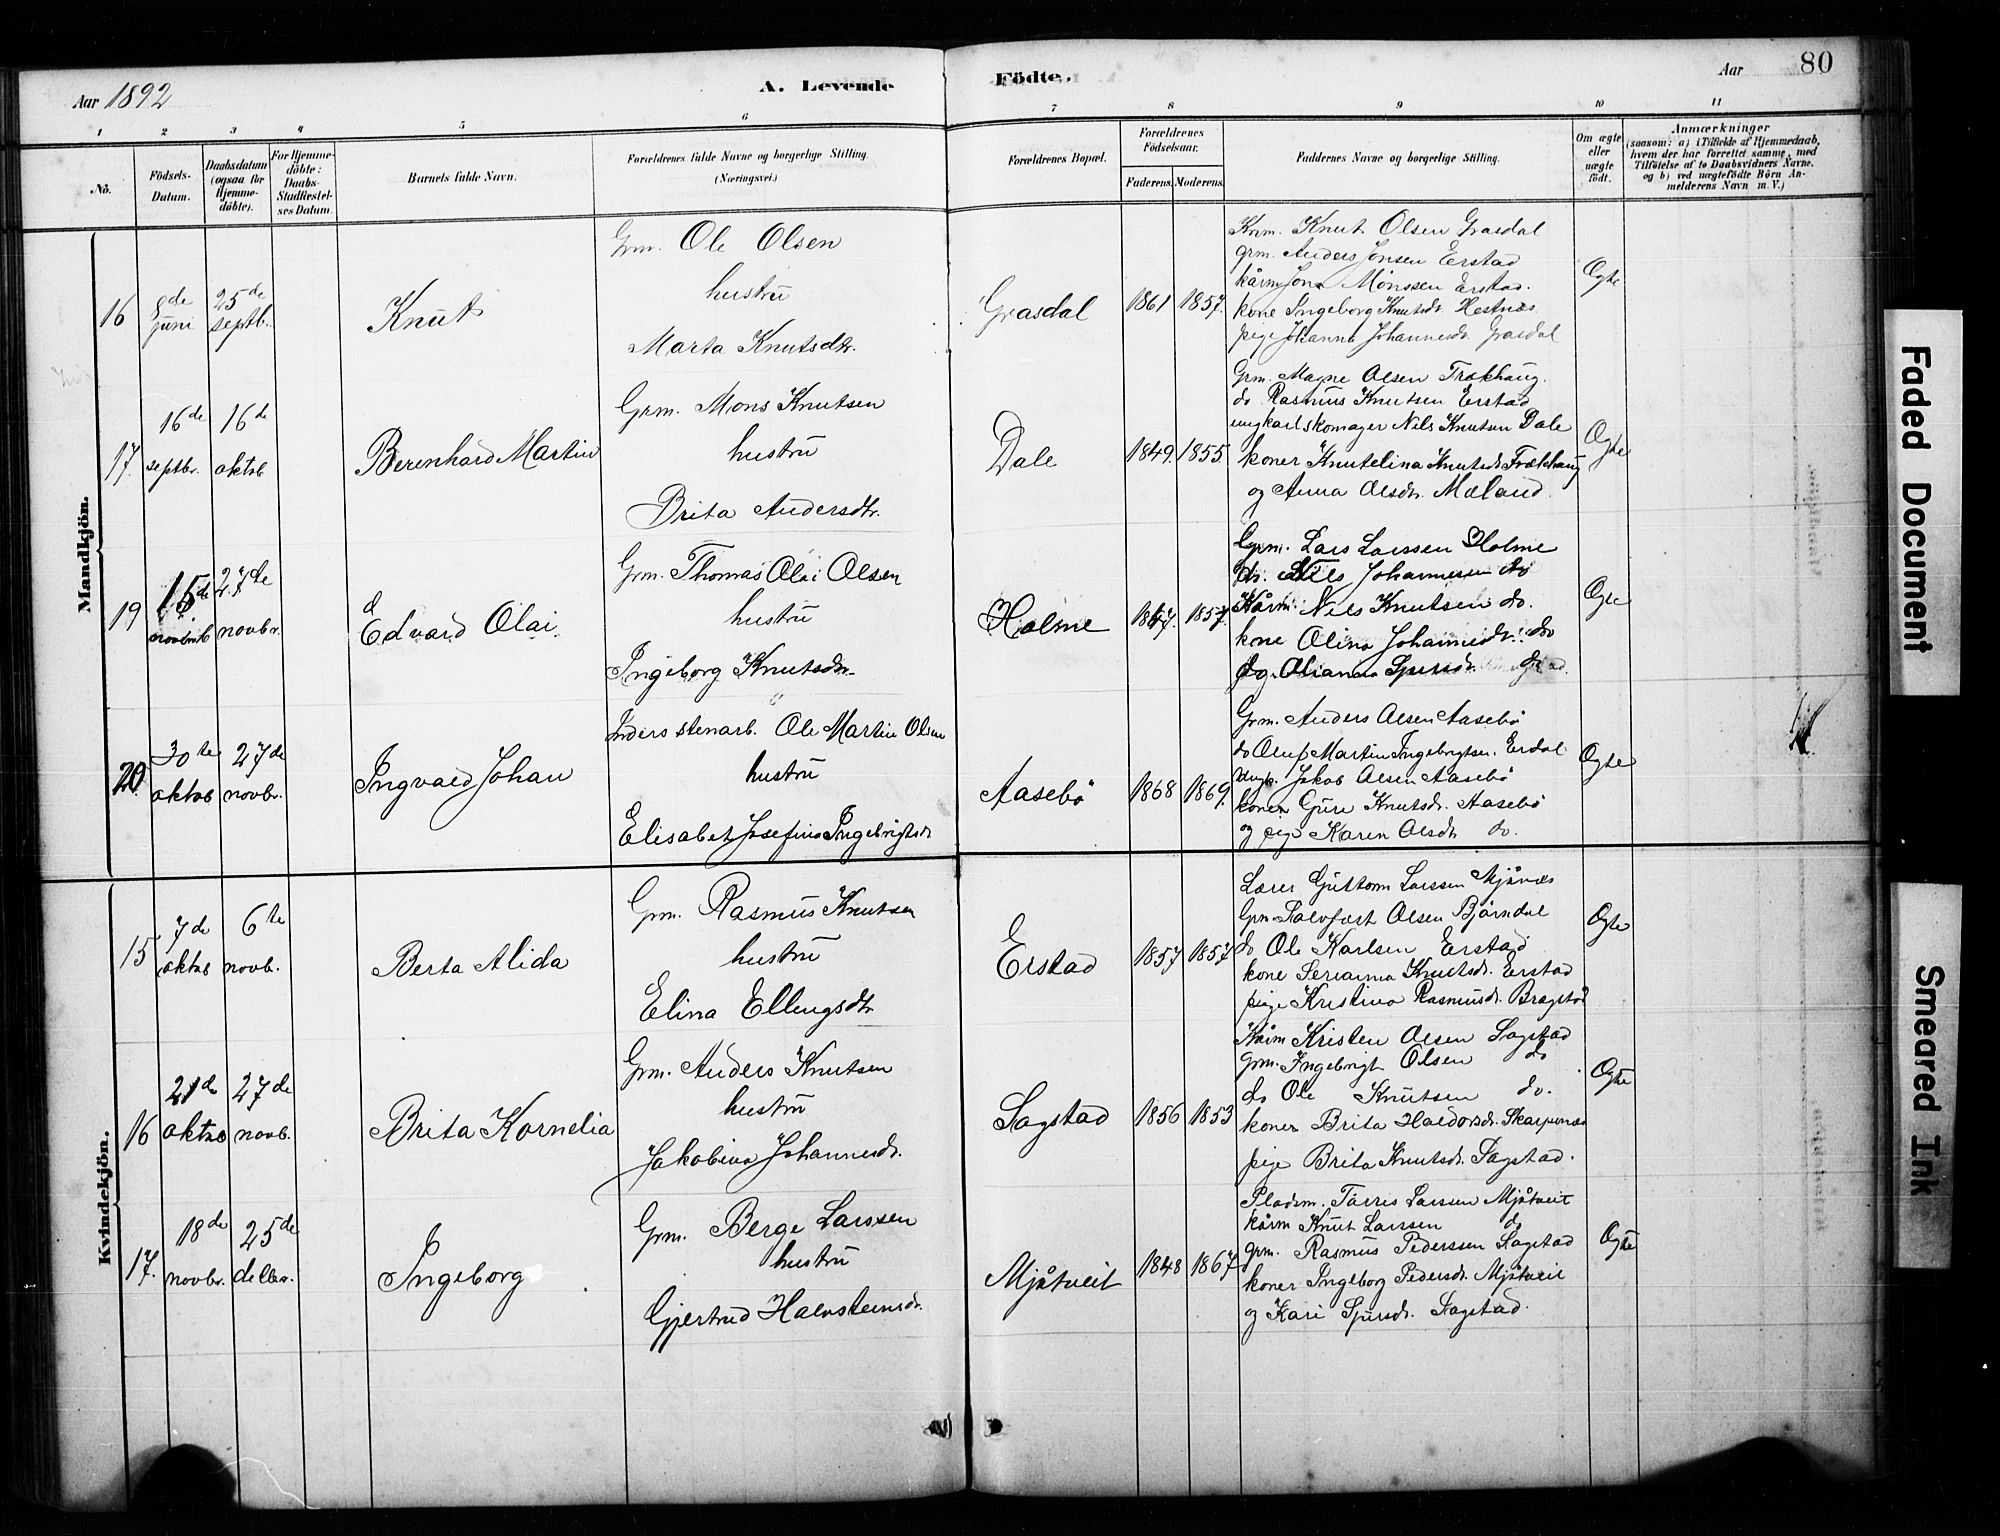 Aar 1892
A. Levende
Födte.
Aar
80
1
2
3
4
5
6
7
8
9
10
11
No.
Födsels-
Datum.
Daabsdatum
(ogsaa for
Hjemme-
döbte).
For Hjemme-
döbte:
Daabs-
Stadfæstel-
ses Datum.
Barnets fulde Navn.
Forældrenes fulde Navne og borgerlige Stilling.
(Næringsvei.)
Forældrenes Bopæl.
Forældrenes
Födselsaar.
Faderens.
Moderens.
Faddernes Navne og borgerlige Stilling.
Om ægte
eller
uægte
födt.
Anmærkninger
(saasom: a) i Tilfælde af Hjemmedaab,
hvem der har forrettet samme, med
Tilföielse af to Daabsvidners Navne.
og b) ved uægtefödte Börn An-
melderens Navn m. V.)
Mandkjön.
16
8de
juni
25de
septbr.
Knut
Grm. Ole Olsen
hustru
Marta Knutsdtr.
Grasdal
1861
1857.
Knm. Knut Olsen Grasdal
grm. Anders Jonsen Erstad
kårm Jon Mönssen Erstad.
kone Ingeborg Knutsdr. Hestnæs
pige Johanna Johannesdr. Grasdal
Ægte
17.
16de
septbr.
16de
oktob
Berenhard Martin
Grm. Mons Knutsen
hustru
Brita Andersdtr.
Dale
1849.
1855.
Grm. Magne Olsen Trækhaug.
do Rasmus Knutsen Erstad
ungkarl skomager Nils Knutsen Dale
koner Knutelina Knutsdr. Trækhaug
og Anna Olsdtr. Mæland.
Ægte
19
15de
novbr
27de
novbr.
Edvard Olai.
Grm. Thomas Olai Olsen
hustru
Ingeborg Knutsdtr.
Holme
1857.
Grm. Lars Larssen Holme
do. Nils Johannesen do
Kårm. Nils Knutsen do.
kone Olina Johannesdr. do
pg. Olianna Sjursdr. do
Ægte
20.
30te
oktob
27de
novbr.
Ingvald Johan
Inders stenarb. Ole Martin Olsen
hustru
Elisabet Josefine Ingebrigtsdr
Aasebö
1868
1869.
Grm. Anders Olsen Aasebö
do Oluf Martin Ingebrigtsen. Erdal
Ungk. Jakob Olsen Aasebö
koner Guri Knutsdr. Aasebö
og pige Karen Olsdtr do.
Ægte
Kvindekjön.
15
7de
oktob
6te
novb.
Berta Alida
Grm. Rasmus Knutsen
hustru
Elina Ellingsdtr
Erstad
1857
1857
Lærer Guttorm Larssen Mjånæs
Grm. Salvfæst Olsen Björndal
do Ole Karlsen Erstad
kone Serianna Knutsdr. Erstad
pige Kristina Rasmusdr. Brægstad
Ægte
16
21de
oktob
27de
novb.
Brita Kornelia
Grm. Anders Knutsen
hustru
Jakobina Johannesdr.
Sagstad
1856
1853
Kårm Kristen Olsen Sagstad
grm. Ingebrigt Olsen do
do Ole Knutsen do.
koner Brita Haldorsdr. Skarpenæs
pige Brita Knutsdr. Sagstad.
Ægte
17.
18de
novbr.
25de
deCbr.
Ingeborg
Grm. Berge Larssen
hustru
Gjertrud Halvsteinsdr.
Mjåtveit
1848
1867
Pladsm. Torris Larssen Mjåtveit
kårm Knut Larssen do
grm. Rasmus Pederssen Sagstad
koner Ingeborg Pedersdr. Mjåtveit
og Kari Sjursdr. Sagstad.
Ægte
Faded Document
Smeared Ink